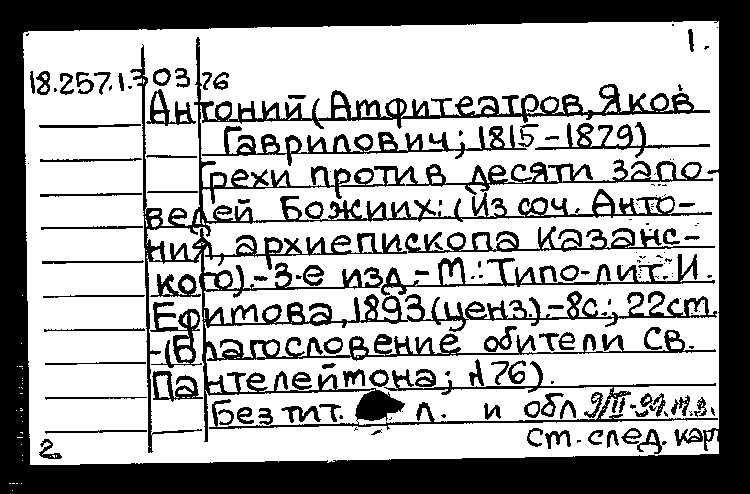 1.
18.257.1.303.76
Антоний (Амфитеатров, Яков
Гаврилович; 1815-1879)
Грехи против десяти запо-
ведей Божиих: (Из соч. Анто-
ния, архиепископа Казанс-
кого).-3-е изд.- М.: Типо-лит. И.
Ефимова, 1893 (ценз).-8с.; 22см.
-(Благословение обители Св.
Пантелеймона; №76).
Без тит. л. и обл
см. след. кар
2.